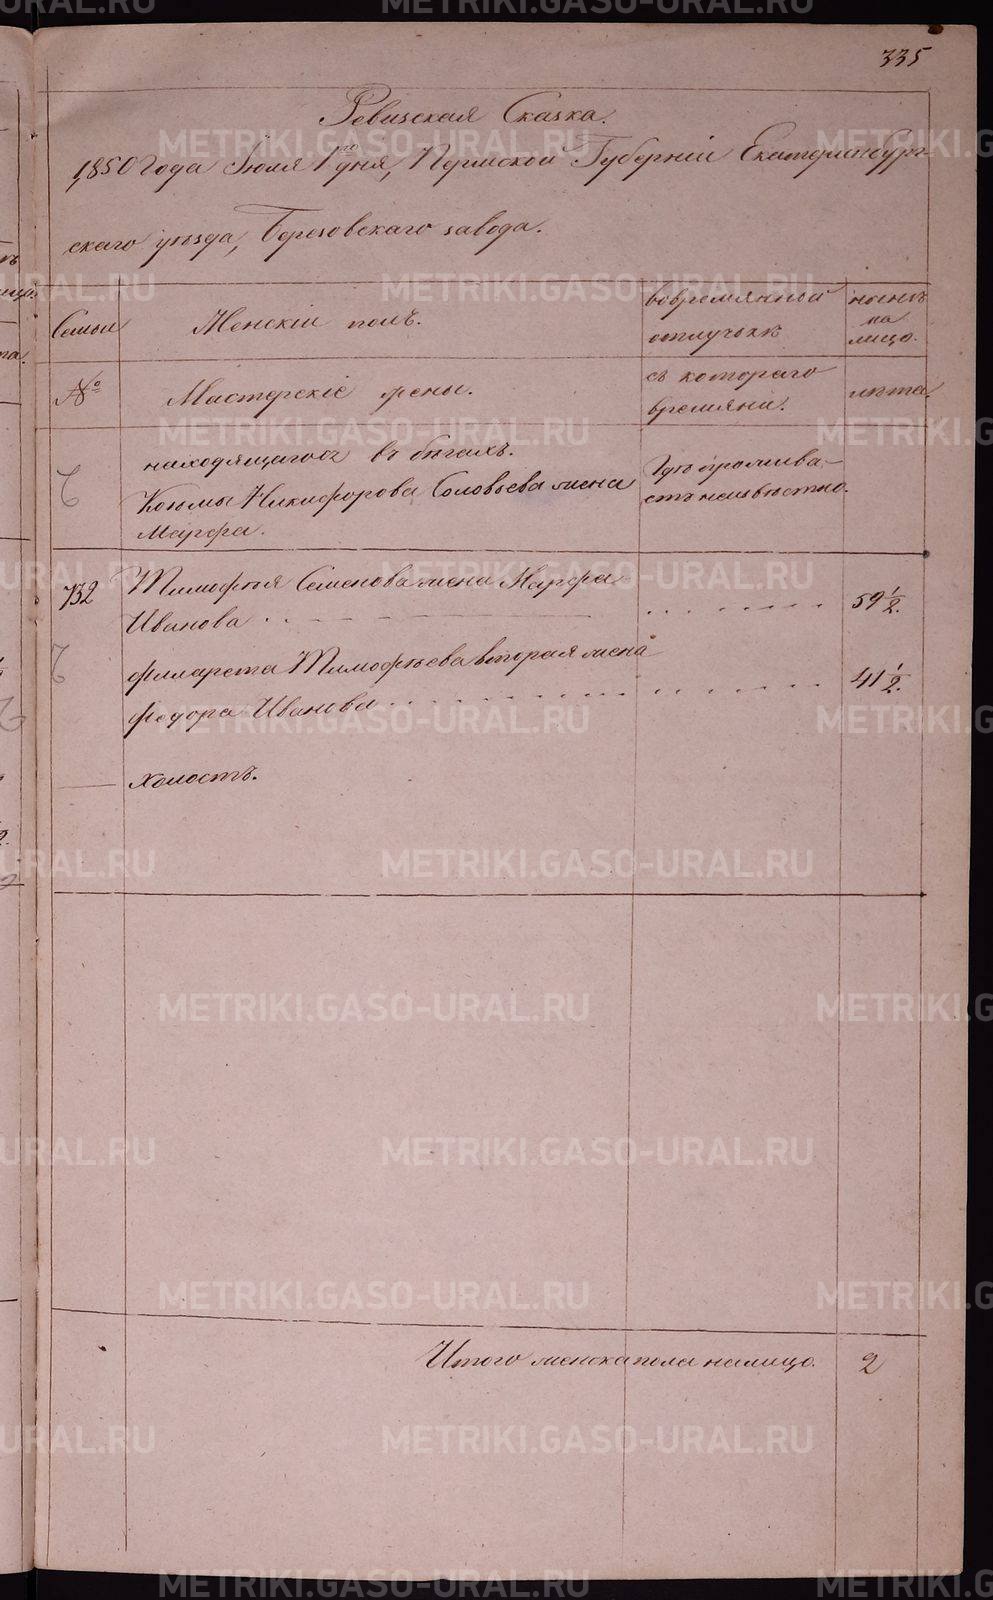 335
Ревизская Сказка.
1,850 Года Іюля 1го дня, Пермской Губерніи Екатеринбург-
скаго уѣзда, Березовскаго завода.
Семьи
Женскій полъ.
вовремянной
отлучькѣ
нынѣ
на
лицо.
№
Мастерскіе жены.
съ котораго
времяни.
лѣта.
находящагося въ бѣгахъ.
Козьмы Никифорова Соловьева жена
Марфа.
Гдѣ прожива-
етъ неизвѣстно.
732
Тимофѣя Семенова жена Марфа
Иванова
59 1/2.
Филарета Тимофѣева вторая жена
Федора Иванова
41 1/2.
холостъ.
Итого женска пола на лицо.
2
METRIKI.GASO-URAL.RU